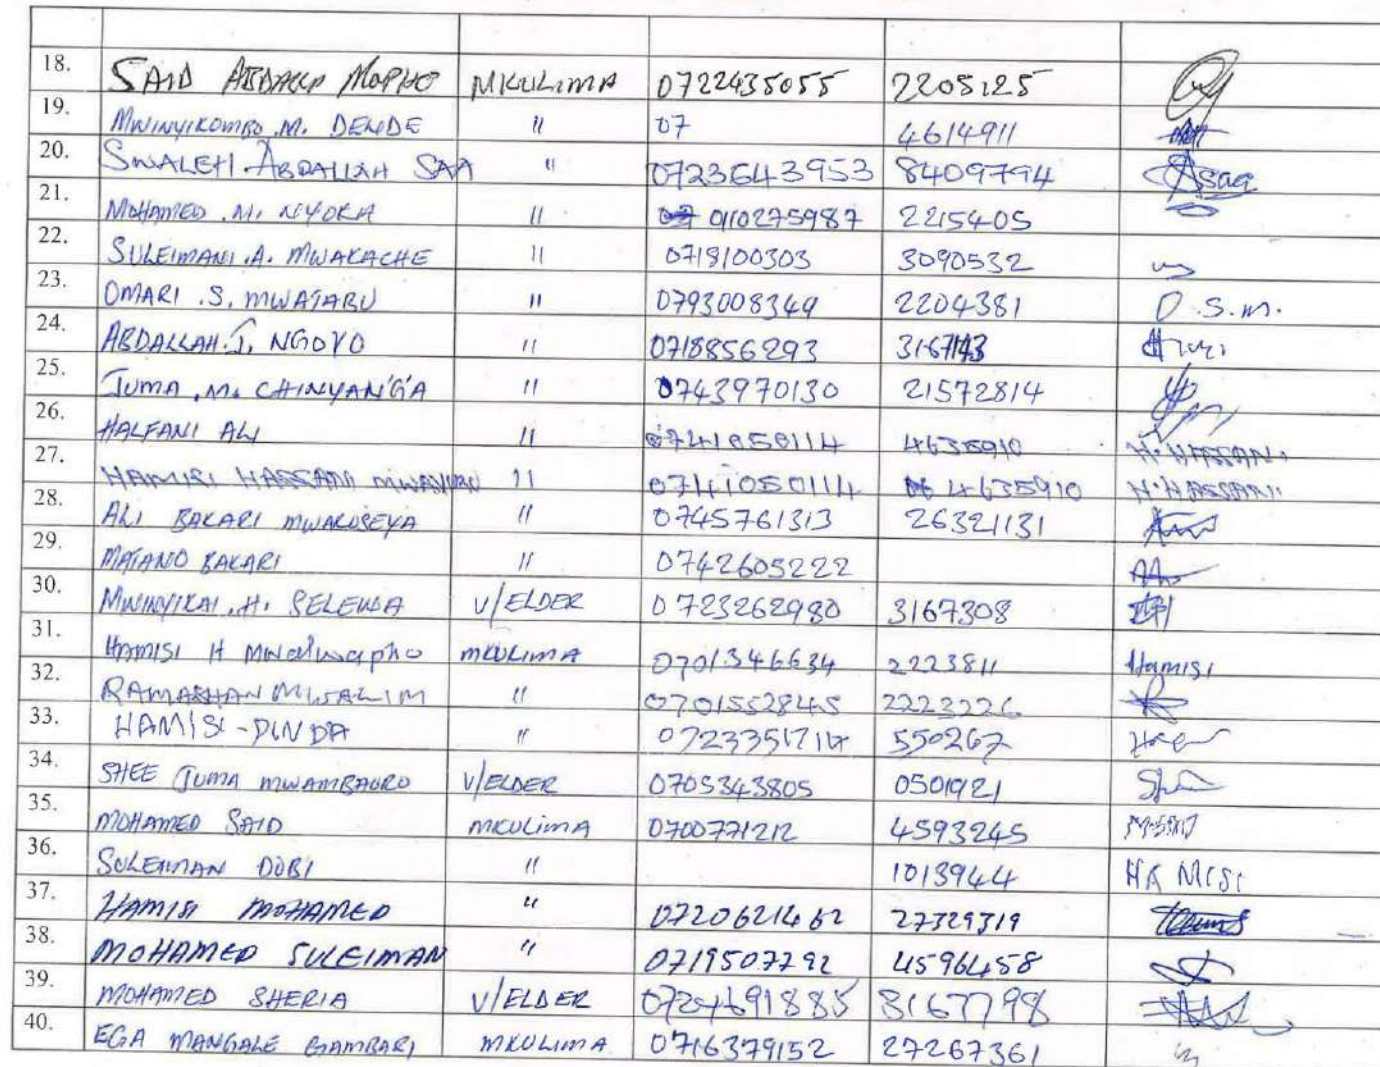 18. SAID ABDALLA MOPHO MKULIMA 0722435055 2205125
19. MWINYIKOMBO M. DENDE " 07 4614911
20. SWALEH ABDALLAH SAA " 0723643953 8409794 Asaa
21. MOHAMED .M. NYOKA " 0110275987 2215405
22. SULEIMANI .A. MWAKACHE " 0718100303 3090532
23. OMARI .S. MWATABU " 0793008349 2204381 O.S.M.
24. ABDALLAH .J. NGOYO " 0718856293 3167143
25. JUMA .M. CHINYAN'GA " 0743970130 21572814
26. HALFANI ALI " 0741050114 4635910 H.HASSANI
27. HAMISI HASSANI " 0741050114 4635910 H.HASSANI
28. ALI BAKARI " 0745761313 26321131
29. MATANO BAKARI " 0742605222
30. MWINYIKAI .H. V/ELDER 0723262980 3167308
31. HAMISI H MKULIMA 0701346634 2223811 Hamisi
32. RAMADHAN MWALIM " 0701552845 2223226
33. HAMISI - DINDA " 550267
34. SHEE JUMA V/ELDER 0705343805 0501921
35. MOHAMED SAID MKULIMA 0700771212 4593245
36. SULEIMAN DOBI " 1013944 HAMISI
37. HAMISI MOHAMED " 0720621462 27329319
38. MOHAMED SULEIMAN " 0719507792 45964458
39. MOHAMED SHERIA V/ELDER 0724691885 3167798
40. EGA MANGALE MKULIMA 0716379152 27267361